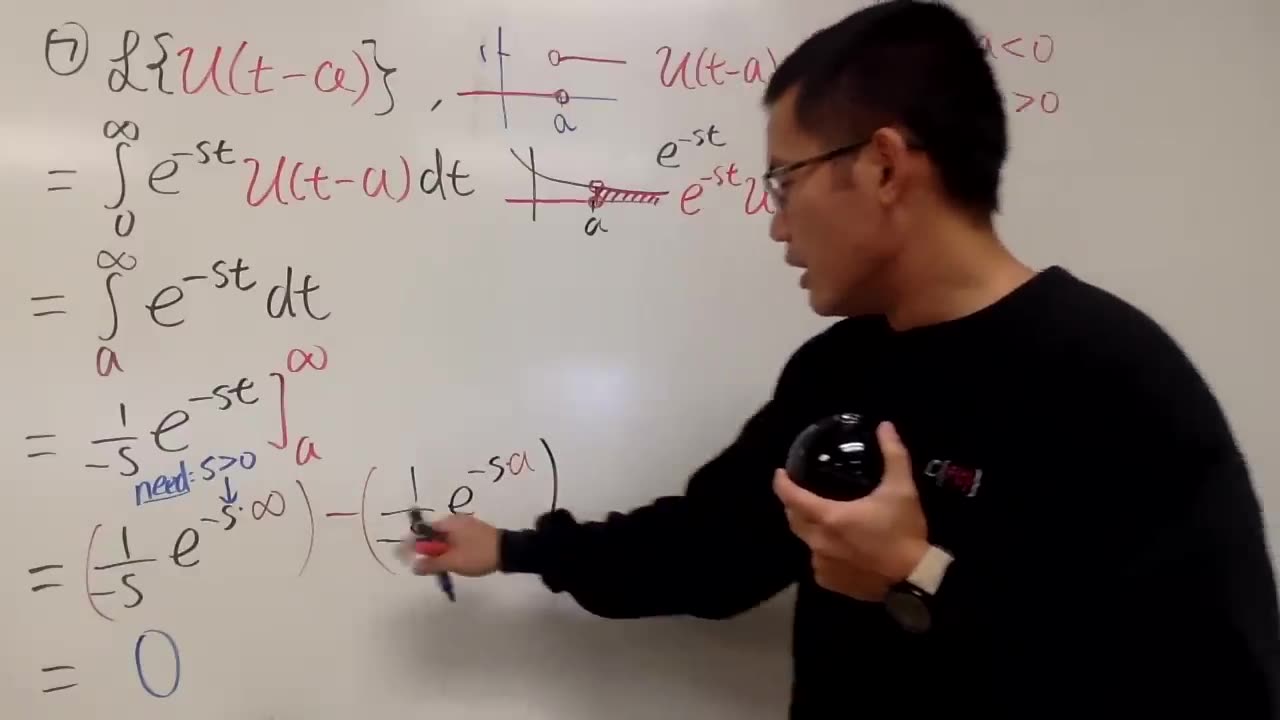 ⑦ ℒ{u(t-a)} , 1 a u(t-a) a<0
>0
= ∫₀^∞ e^{-st} u(t-a) dt a e^{-st}
e^{-st} u
= ∫ₐ^∞ e^{-st} dt
= 1/-s e^{-st} ]ₐ^∞
need: s>0
= (1/-s e^{-s·∞}) - (1/- e^{-s·a})
= 0